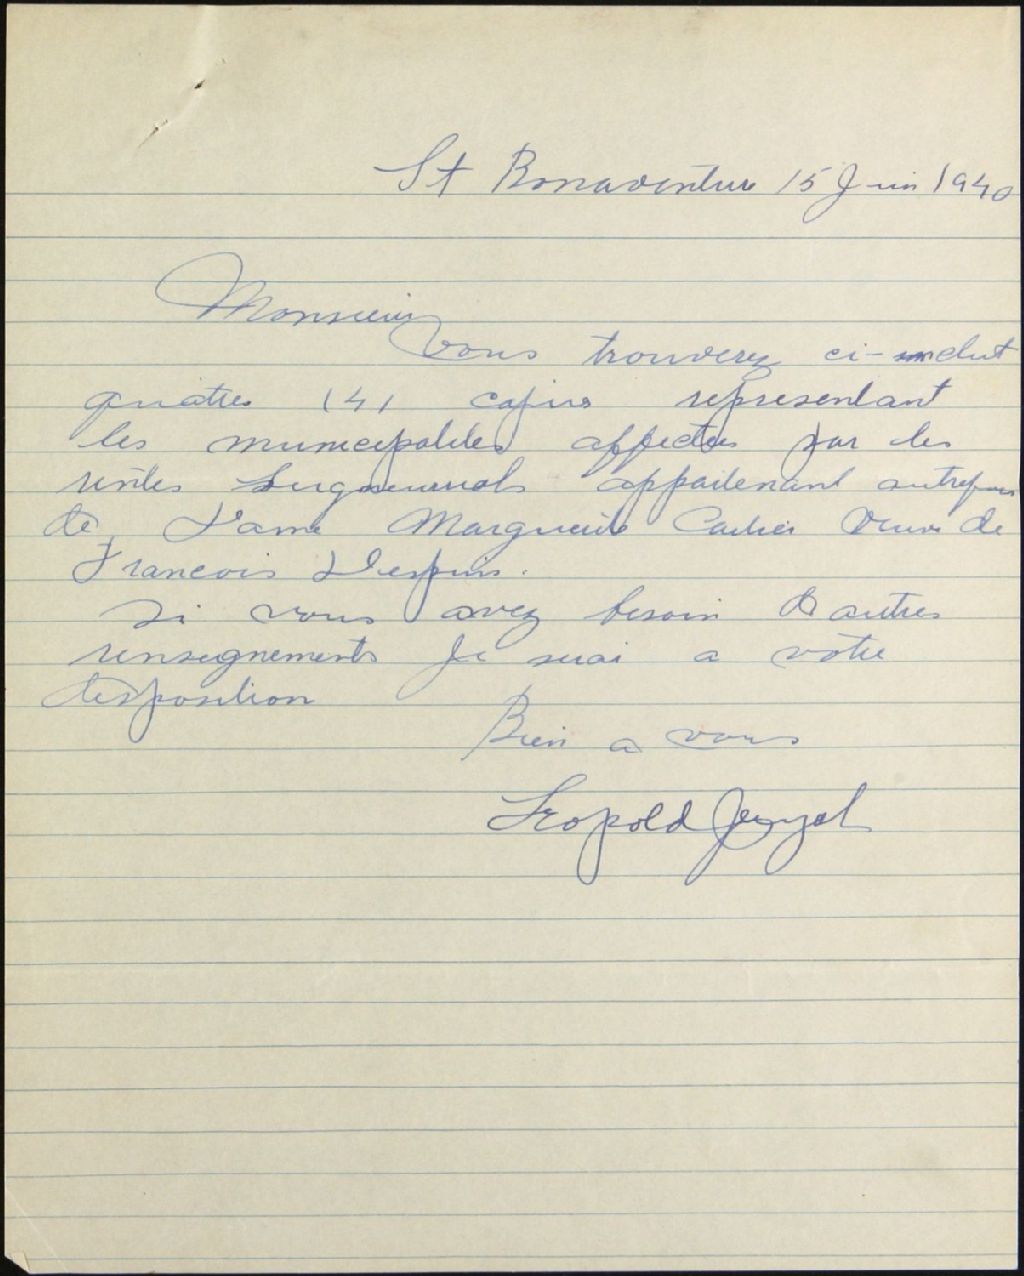 St Bonaventure 15 Juin 1940
Monsieur
Vous trouverez ci-inclut
quatres (4) copies representant
les municipalités affectés par les
rentes Seigneurials appartenant autrefois
de, Dame Marguerite Cartier Veuve de
Francois Despins.
Si vous avez besoin d autres
renseignements je serai a votre
disposition
Bien a vous
Leopold